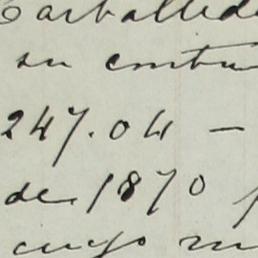 Carballed
su contu
247.04 —
de 1870 p
cuyo m